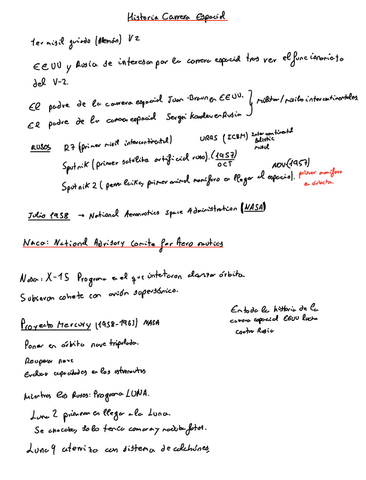 Historia Carrera Espacial
1er misil guiado (Alemán) V2
EEUU y Rusia se interesan por la carrera espacial tras ver el funcionamiento
del V-2.
El padre de la carrera espacial Juan Braun en EEUU.
El padre de la carrera espacial Sergei en Rusia
militar/misiles intercontinentales
RUSOS R7 (primer misil intercontinental) URSS (ICBM) Intercontinental
Balistic
misil
Sputnik (primer satélite artificial ruso). (1957)
OCT
NOV (1957)
Sputnik 2 (perra laika, primer animal mamífero en llegar al espacio). primer mamífero
en órbita.
Julio 1958 → National Aeronautics Space Administration (NASA)
Naca: National Advisory Comite for Aeronautics
Nasa: X-15 Programa en el que intentaron alcanzar órbita.
Subieron cohete con avión supersónico.
En toda la historia de la
carrera espacial EEUU lucha
contra Rusia
Proyecto Mercury (1958-1963) NASA
Poner en órbita nave tripulada.
Recuperar nave
Evaluar capacidades en los astronautas
Mientras los Rusos: Programa LUNA.
Luna 2 primera en llegar a la Luna.
Se chocaba, solo tenía cámara y mandaba fotos.
Luna 9 aterriza con sistema de colchones.